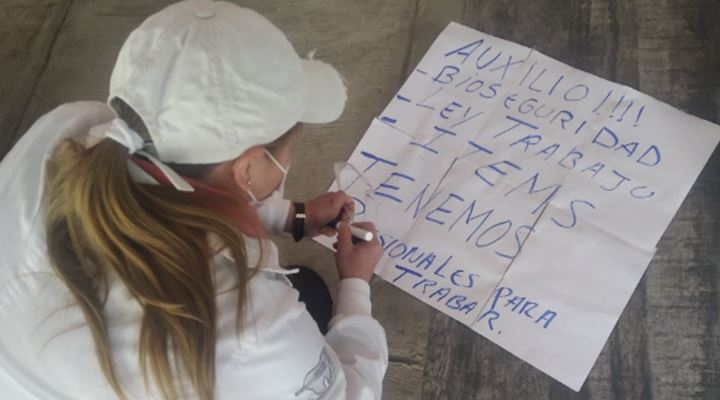 AUXILIO!!!
- BIOSEGURIDAD
- LEY TRABAJO
- ITEMS
TENEMOS
PARA
TRABAR.